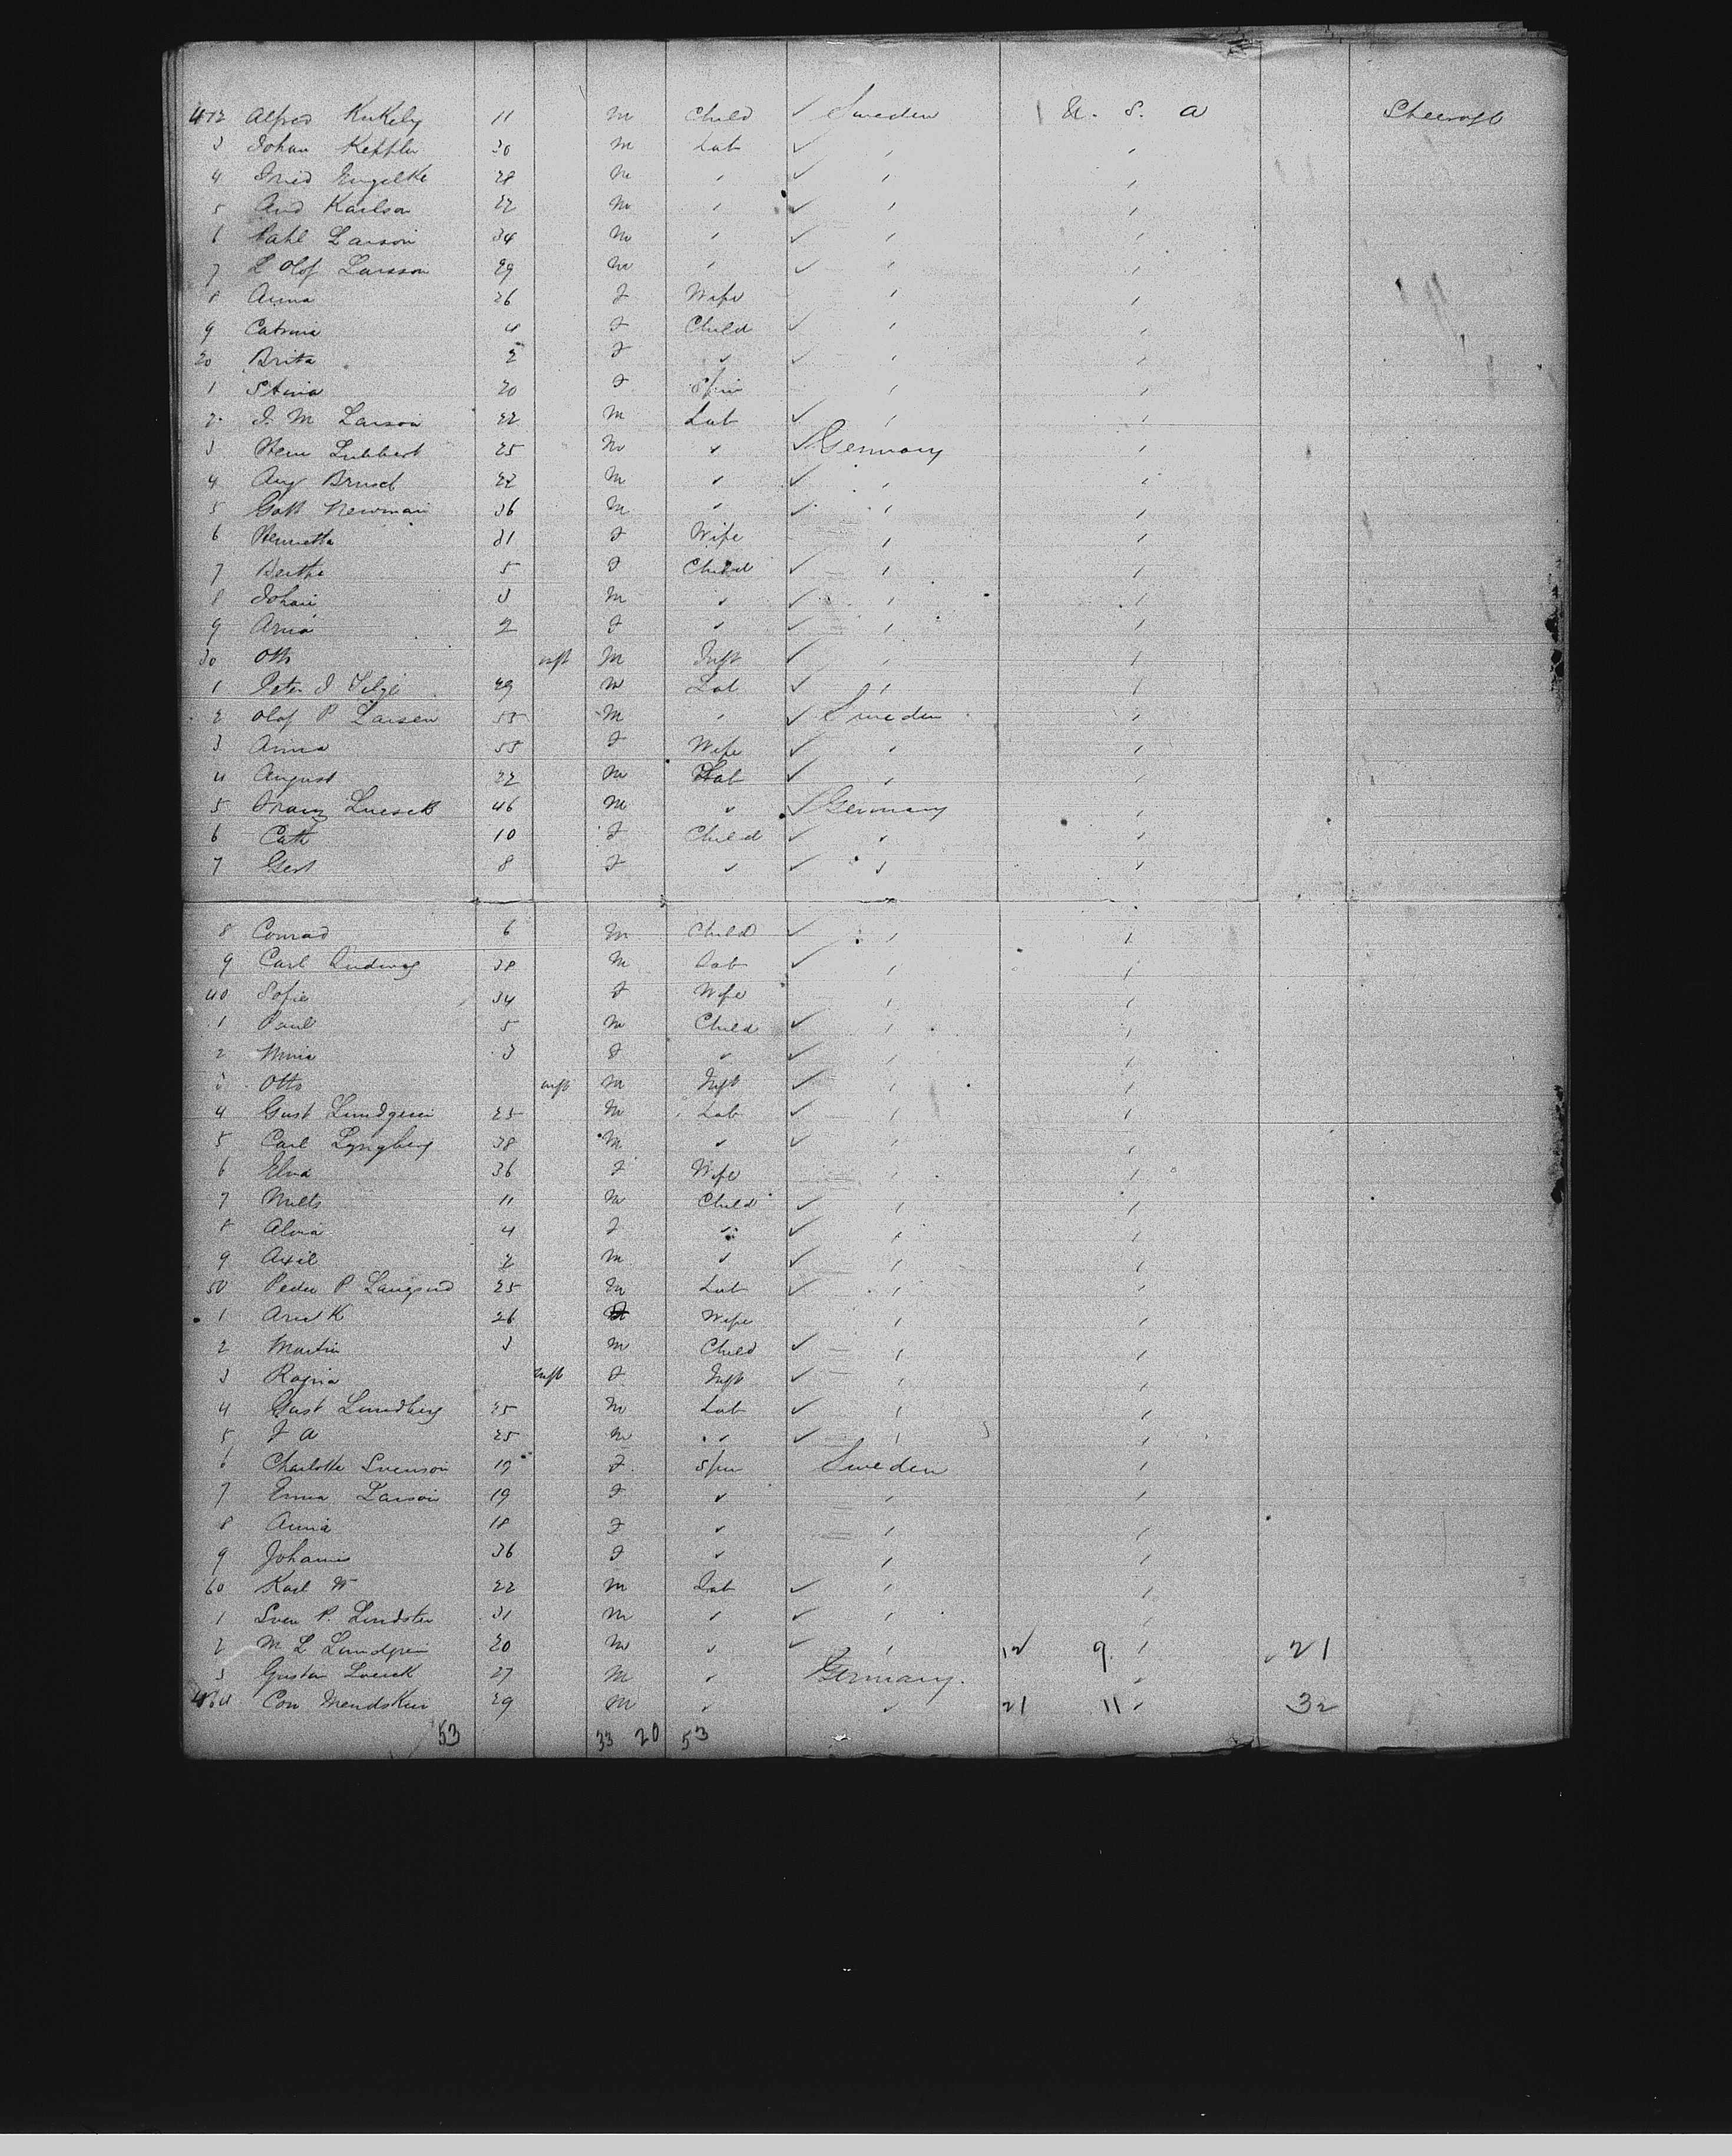 412 Alfred Kukely 11 M Child ✓ Sweden U. S. A
3 Johan Keppler 30 M Lab ✓ " "
4 Fried Engelke 28 M " ✓ " "
5 And Karlson 22 M " ✓ " "
6 Pahl Larson 34 M " ✓ " "
7 L Olof Larsson 29 M " ✓ " "
8 Anna 26 F Wife " "
9 Catrina 4 F Child ✓ " "
20 Brita 2 F " ✓ " "
1 Stina 20 F Spin " "
2 J. M Larson 22 M Lab ✓ " "
3 Hein Lubbert 25 M " ✓ Germany "
4 Aug Brusch 22 M " ✓ " "
5 Gott Newman 36 M " ✓ " "
6 Henrietta 31 F Wife " "
7 Bertha 5 F Child ✓ " "
8 Johan 3 M " ✓ " "
9 Anna 2 F " ✓ " "
30 Otto inft M Inft ✓ " "
1 Peter J 29 M Lab ✓ " "
2 Olof P Larsen 55 M " ✓ Sweden "
3 Anna 55 F Wife ✓ " "
4 August 22 M Lab ✓ " "
5 Franz 46 M " ✓ Germany "
6 Cath 10 F Child ✓ " "
7 Gert 8 F " ✓ " "
8 Conrad 6 M Child ✓ " "
9 Carl Ludwig 38 M Lab ✓ " "
40 Sofie 34 F Wife " "
1 Paul 5 M Child ✓ " "
2 Minia 3 F " ✓ " "
3 Otto inft M Inft ✓ " "
4 Gust Lundgren 25 M Lab ✓ " "
5 Carl Lyngberg 38 M " ✓ " "
6 Elna 36 F Wife " "
7 Nills 11 M Child ✓ " "
8 Alma 4 F " ✓ " "
9 Axil 2 M " ✓ " "
50 Peder P 25 M Lab ✓ " "
1 K 26 F Wife " "
2 Martin 3 M Child ✓ " "
3 Ragna inft F Inft ✓ " "
4 Gust Lundberg 25 M Lab ✓ " "
5 J A 25 M " ✓ " "
6 Charlotte Svenson 19 F Spin Sweden "
7 Emma Larson 19 F " " "
8 Anna 18 F " " "
9 Johannis 36 F " " "
60 Karl W 22 M Lab ✓ " "
1 Sven P. Lindsten 31 M " ✓ " "
2 M L Lundgren 20 M " ✓ " 12 9 " 21
3 Gustav 27 M " Germany. "
464 Con Mendsken 29 M " " 21 11 " 32
53 33 20 53